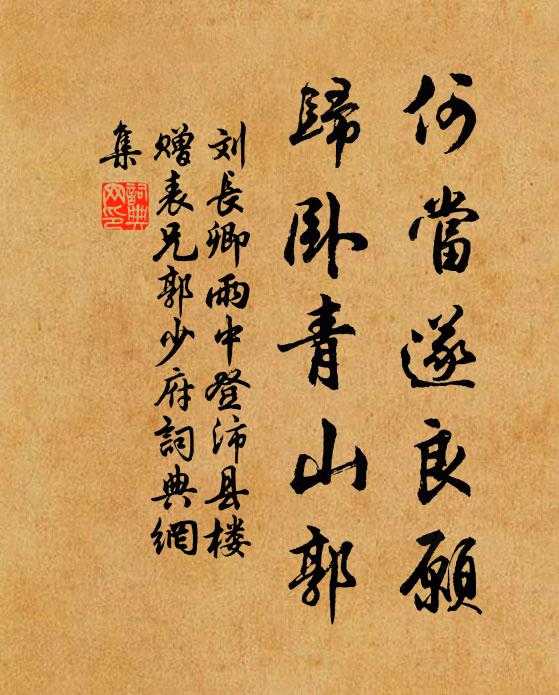 何當遂良願
歸卧青山郭
刘長卿雨中登沛县楼
贈表兄郭少府詞典網
集
詞典网印